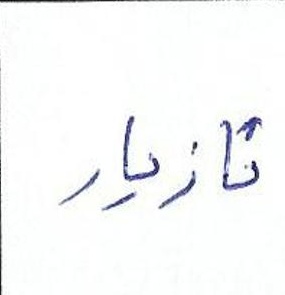 تازیار